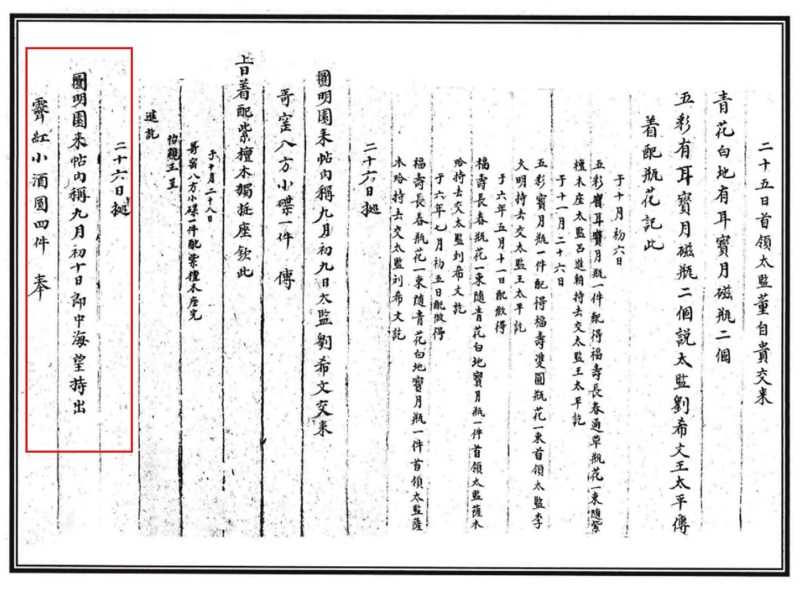 二十五日首領太監董自貴交来
青花白地有耳寳月磁瓶二個
五彩有耳寳月磁瓶二個説太監劉希文王太平傳
着配瓶花記此
于十月初六日
五彩雙耳寳月瓶一件配得福壽長春通草瓶花一束随紫
檀木座太監吕進朝持去交太監王太平訖
于十一月二十六日
五彩寳月瓶一件配得福壽雙圓瓶花一束首領太監李
久明持去交太監王太平訖
于六年五月十一日配做得
福壽長春瓶花一束随青花白地寳月瓶一件首領太監薩木
哈持去交太監刘希文訖
于六年七月初五日配做得
福壽長春瓶花一束随青花白地寳月瓶一件首領太監薩
木哈持去交太監刘希文訖
二十六日
圓明園来帖内稱九月初九日太監劉希文交来
哥窑八方小碟一件 傳
上曰着配紫檀木獨挺座欽此
于十月二十八日
哥窑八方小碟一件配紫檀木座完
怡親王呈
進訖
二十六日
圓明園来帖内稱九月初十日郎中海望持出
霽紅小酒圓四件 奉